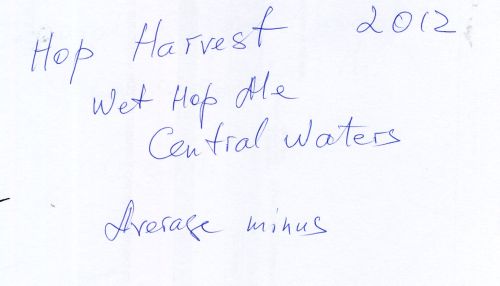 Hop Harvest 2012
Wet Hop Ale
Central Waters
Average minus